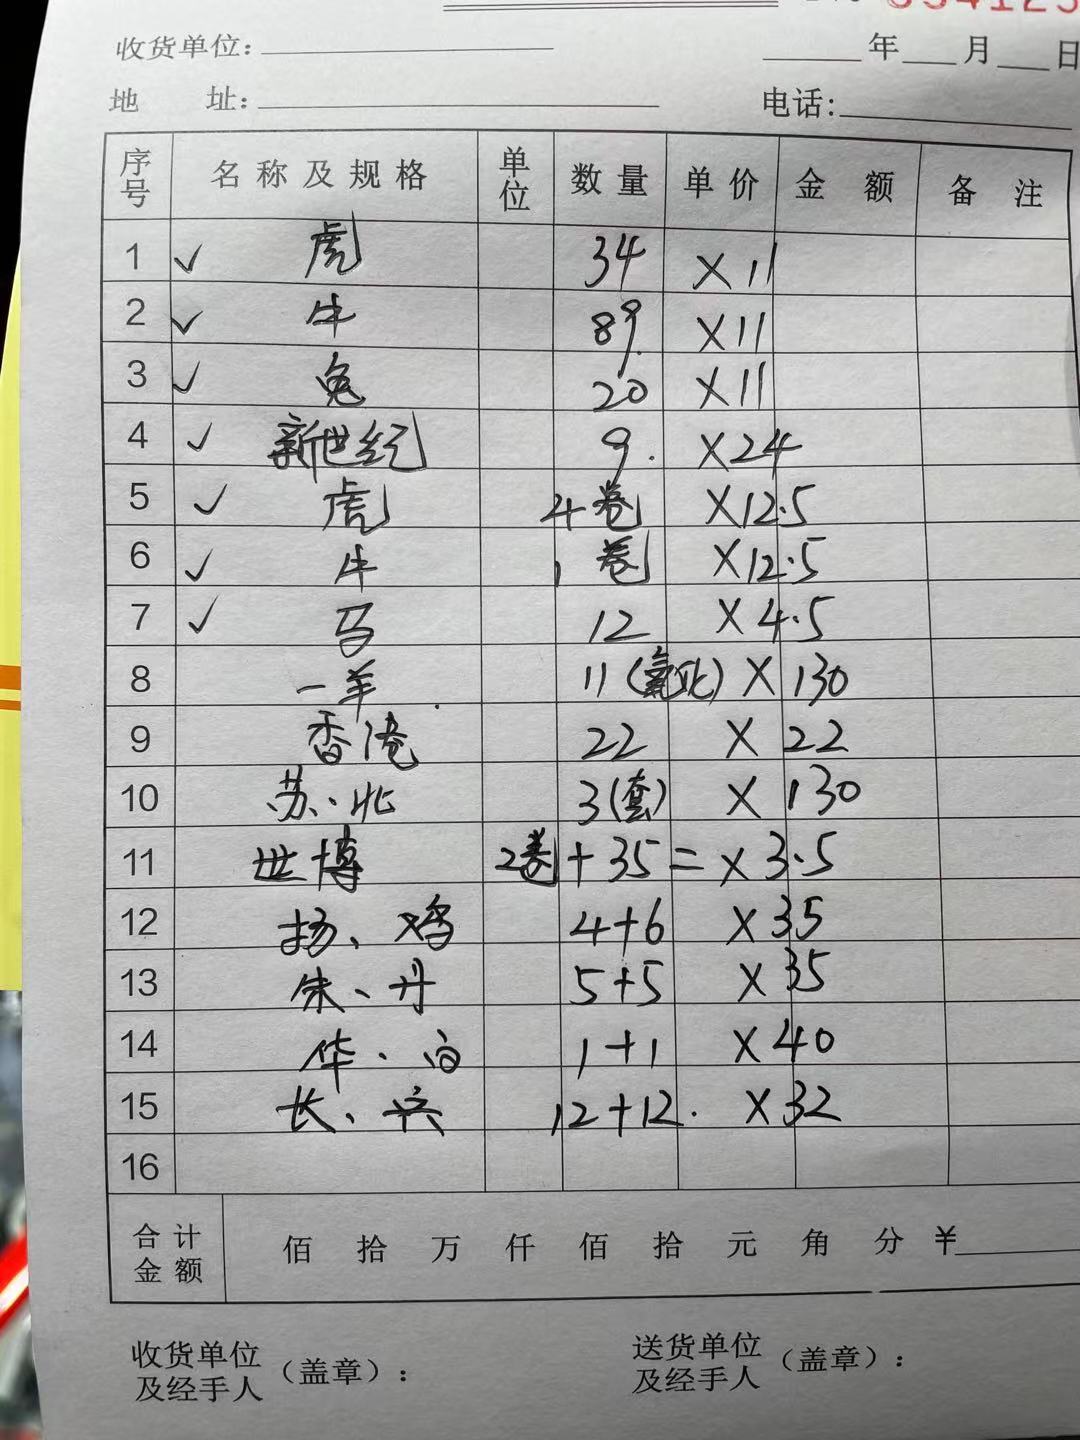 收货单位：
年 月 日
地 址： 电话：
序号 名称及规格 单位 数量 单价 金额 备注
1 ✓ 虎 34 ×11
2 ✓ 牛 89 ×11
3 ✓ 兔 20 ×11
4 ✓ 新世纪 9. ×24
5 ✓ 虎 4卷 ×12.5
6 ✓ 牛 1卷 ×12.5
7 ✓ 马 12 ×4.5
8 一羊 11 ( ) ×130
9 香港 22 ×22
10 苏、北 3(套) ×130
11 世博 2卷+35= ×3.5
12 扬、鸡 4+6 ×35
13 朱、丹 5+5 ×35
14 华、向 1+1 ×40
15 长、兴 12+12. ×32
16
合计金额 佰 拾 万 仟 佰 拾 元 角 分 ¥
收货单位及经手人（盖章）： 送货单位及经手人（盖章）：